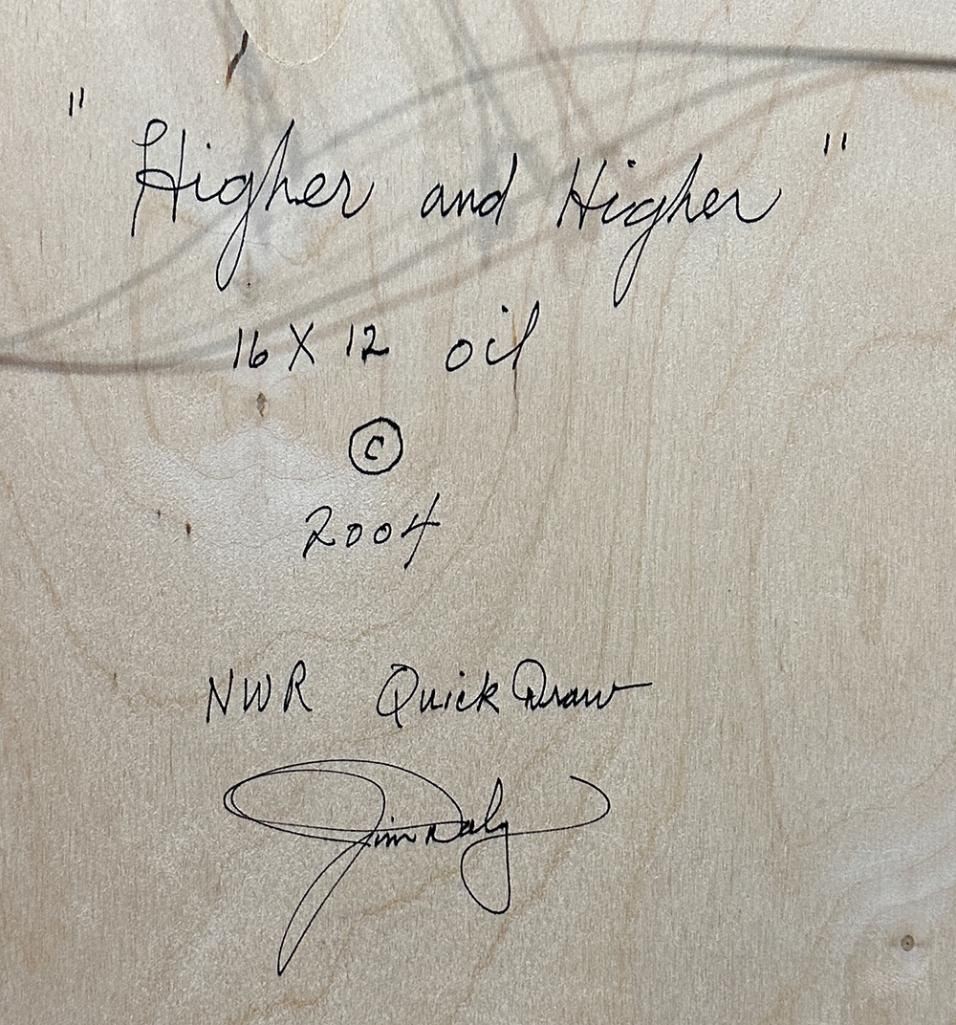 "Higher and Higher"
16 X 12 oil
©
2004
NWR Quick Draw
Jim Daly